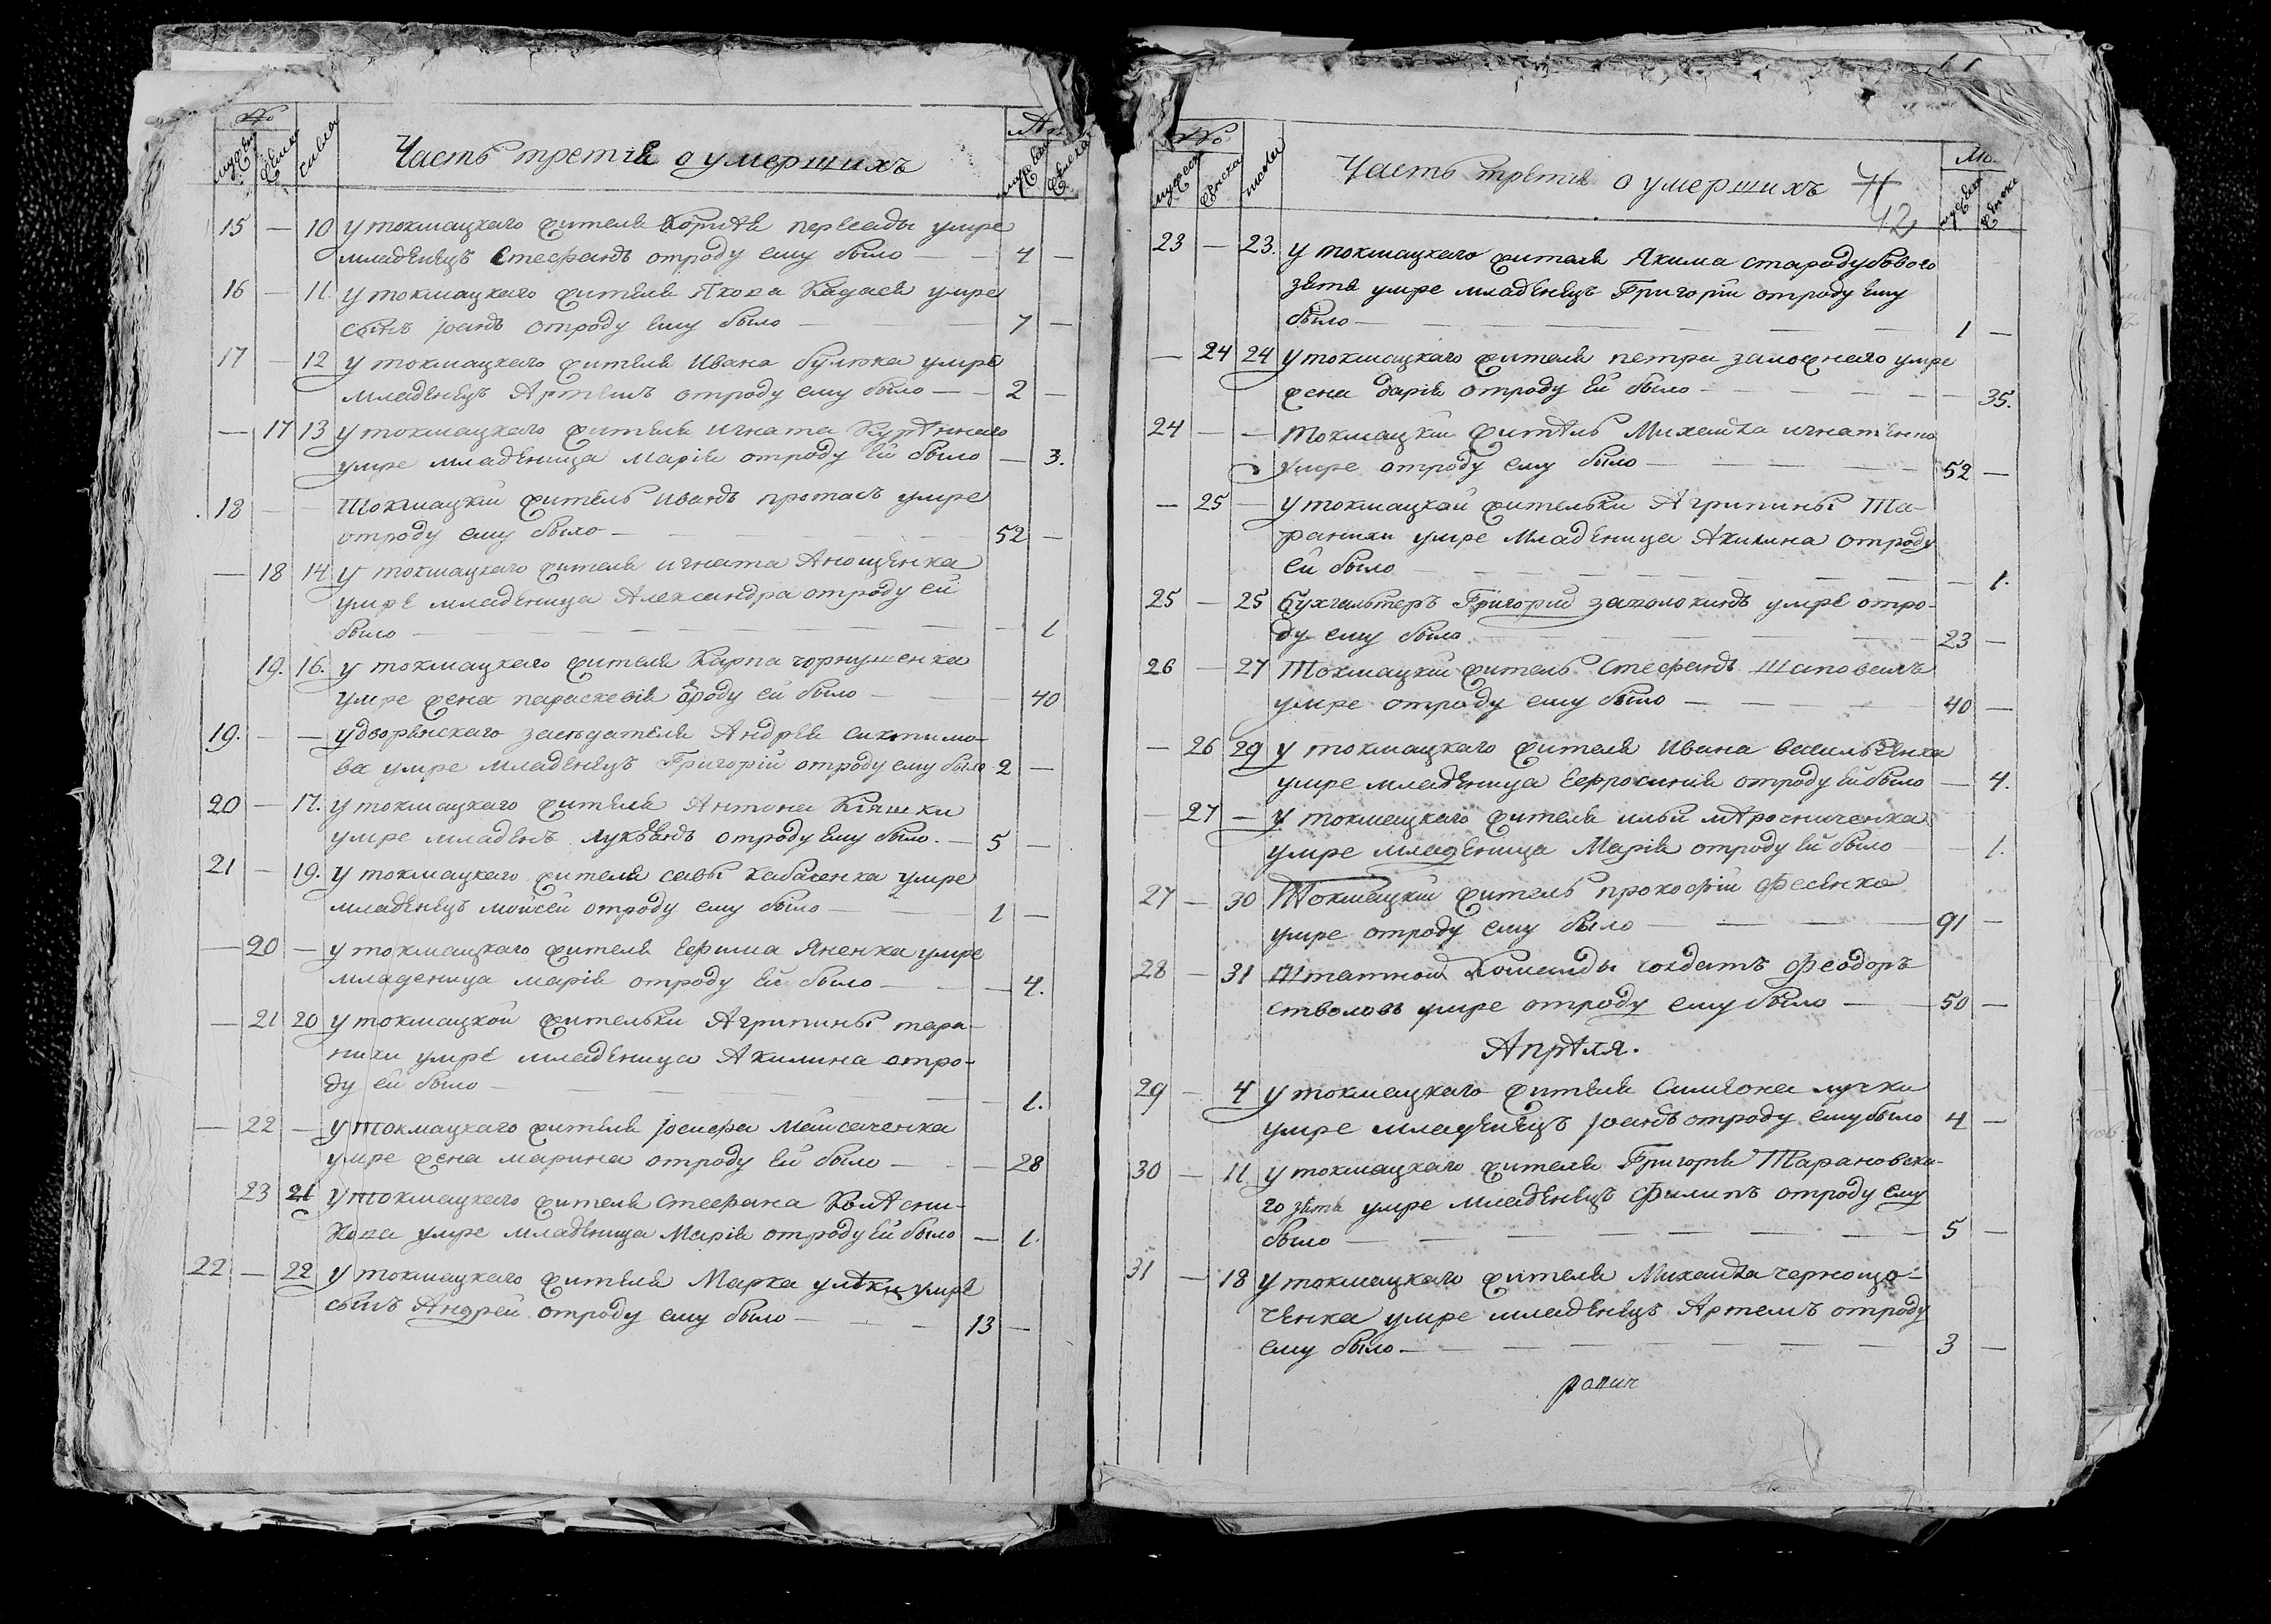 № Лѣ
мужеск женска числа мужеска женска
Часть третія о умершихъ
15 — 10 У токмацкаго жителя Корнѣя пересады умре
младенецъ Стефанъ отроду ему было — 4 —
16 — 11. У токмацкаго жителя Якова умре
сынъ Іоанъ отроду ему было — 7 —
17 — 12 У токмацкаго жителя Ивана булюка умре
младенецъ Артемъ отроду ему было — 2 —
— 17 13 У токмацкаго жителя игната Курѣннаго
умре младеница Марія отроду ей было — 3.
18 — — Токмацкій житель Иванъ протасъ умре
отроду ему было — 52 —
— 18 14 У токмацкаго жителя игната Анощенка
умре младеница Александра отроду ей
было — 1
19. 16. У токмацкаго жителя Карпа чорнушенка
умре жена параскевія ѿроду ей было — 40
19. — — У дворянскаго засѣдателя Андрея
ва умре младенецъ Григорій отроду ему было 2 —
20 — 17. У токмацкаго жителя Антона Кіяшки
умре младенъ Лукіянъ отроду ему было. — 5 —
21 — 19. У токмацкаго жителя савы кабаченка умре
младенецъ мойсей отроду ему было — 1 —
— 20 — У токмацкаго жителя Ефима Яненка умре
младеница марія отроду ей было — 4.
— 21 20 У токмацкой жительки Агрипины тара-
нихи умре младеница Акилина отро-
ду ей было — 1.
— 22 — У токмацкаго жителя Іосифа Майсаченка
умре жена марина отроду ей было — 28
23 21 У токмацкаго жителя Стефана Колѣсни-
кова умре младеница Марія отроду ей было — 1.
22 — 22 У токмацкаго жителя Марка улѣки умре
сынъ Андрей отроду ему было — 13 —
11
№ Лѣ.
мужеск женска числа мужеск женска
Часть третія о умершихъ
42
23 — 23. У токмацкаго жителя Якима стародубового
зятя умре младенецъ Григорій отроду ему
было — 1 —
— 24 24 У токмацкаго жителя петра заложнаго умре
жена дарія отроду ей было — 35.
24 — — Токмацкій житель Михайла игнатенко
умре отроду ему было — 52 —
— 25 — У токмацкой жительки Агрипины Та-
ранихи умре младеница Акилина отроду
ей было — 1.
25 — 25 Бухгалтеръ Григорій заполокинъ умре отро-
ду ему было 23 —
26 — 27 Токмацкій житель Стефанъ Шаповалъ
умре отроду ему было — 40 —
— 26 29 У токмацкаго жителя Ивана васильченка
умре младеница Ефросинія отроду ей было — 4.
— 27 — У токмацкаго жителя ильи мѣрошниченка
умре младеница Марія отроду ей было — 1.
27 — 30 Токмацкій житель прокофій Фесенко
умре отроду ему было — 91 —
28 — 31 Штатной Команды солдатъ Феодоръ
стволовъ умре отроду ему было — 50 —
Апрѣля.
29 — 4 У токмацкаго жителя Симеона лучки
умре младенецъ Іоанъ отроду ему было 4 —
30 — 11 У токмацкаго жителя Григорія Тарановска-
го зятя умре младенецъ Филипъ отроду ему
было — 5 —
31 — 18 У токмацкаго жителя Михайла чернощо-
ченка умре младенецъ Артемъ отроду
ему было — 3 —